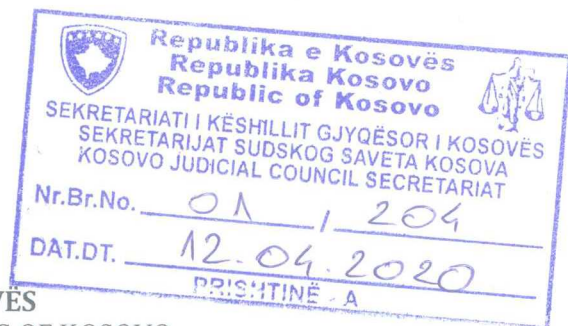 Republika e Kosovës
Republika Kosovo
Republic of Kosovo
SEKRETARIATI I KËSHILLIT GJYQËSOR I KOSOVËS
SEKRETARIJAT SUDSKOG SAVETA KOSOVA
KOSOVO JUDICIAL COUNCIL SECRETARIAT
Nr.Br.No. 01 / 204
DAT.DT. 12.04.2020
PRISHTINË - A
VËS
OF KOSOVO